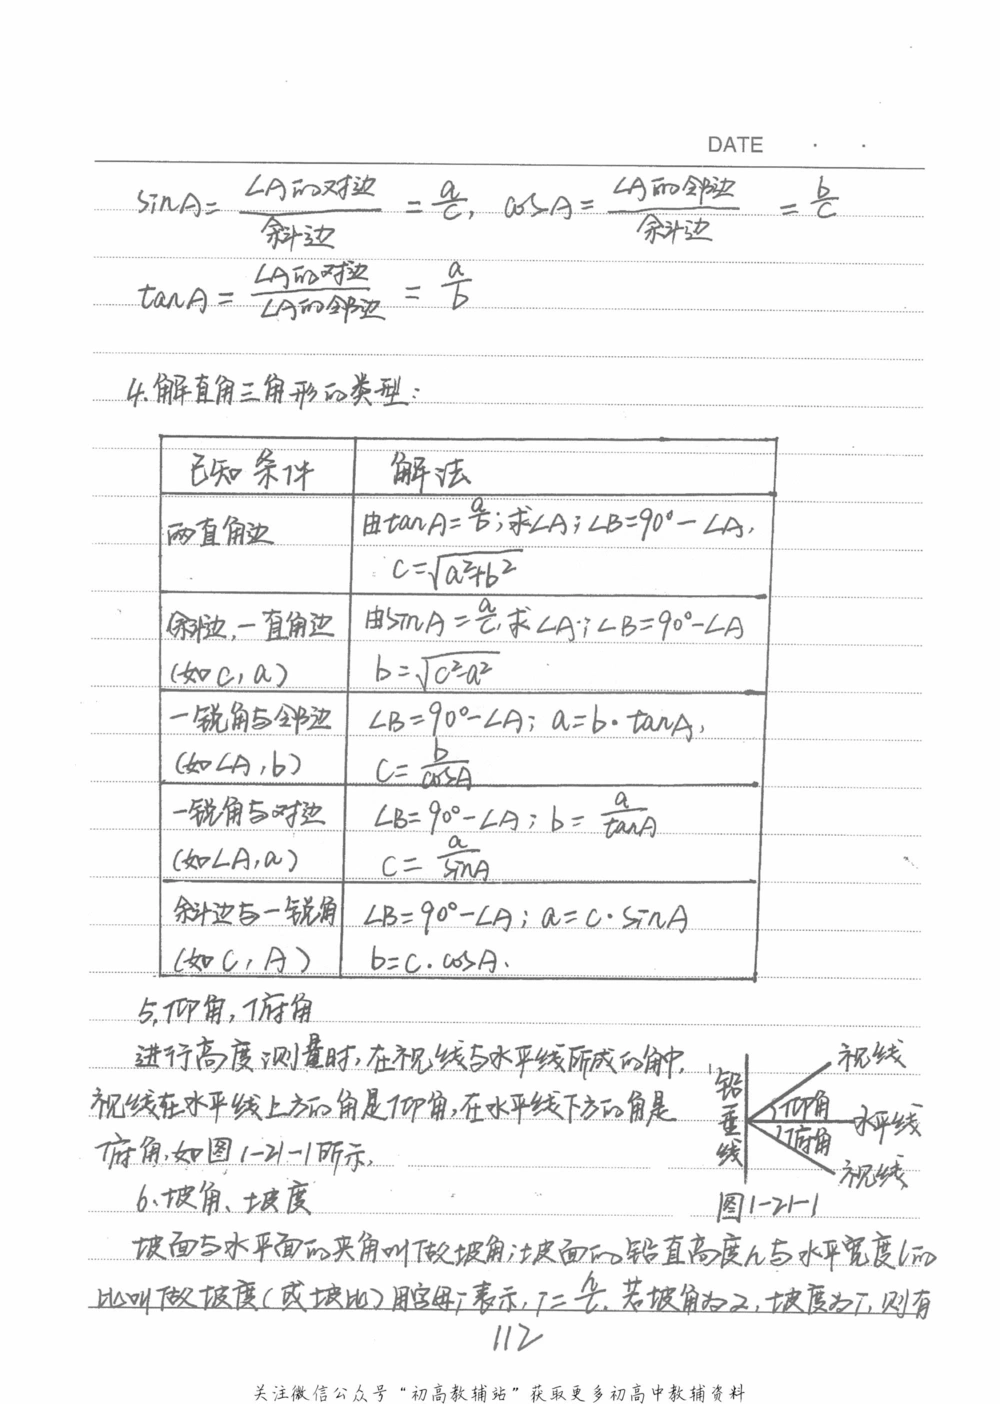 DATE
sinA = ∠A的对边/斜边 = a/c, cosA = ∠A的邻边/斜边 = b/c
tanA = ∠A的对边/∠A的邻边 = a/b
4.解直角三角形的类型:
已知条件 解法
两直角边 由tanA=a/b;求∠A;∠B=90°-∠A,
c=√(a²+b²)
斜边,一直角边 由sinA=a/c,求∠A;∠B=90°-∠A
(如c,a) b=√(c²-a²)
一锐角与邻边 ∠B=90°-∠A; a=b·tanA,
(如∠A,b) c=b/cosA
一锐角与对边 ∠B=90°-∠A; b=a/tanA
(如∠A,a) c=a/sinA
斜边与一锐角 ∠B=90°-∠A; a=c·sinA
(如c,A) b=c·cosA.
5,仰角,俯角
进行高度测量时,在视线与水平线所成的角中,
视线在水平线上方的角是仰角,在水平线下方的角是
俯角,如图1-21-1所示,
铅垂线
视线
仰角
水平线
俯角
视线
图1-21-1
6、坡角、坡度
坡面与水平面的夹角叫做坡角;坡面的铅直高度h与水平宽度l的
比叫做坡度(或坡比)用字母i表示,i=h/l.若坡角为α,坡度为i,则有
112
关注微信公众号“初高教辅站”获取更多初高中教辅资料